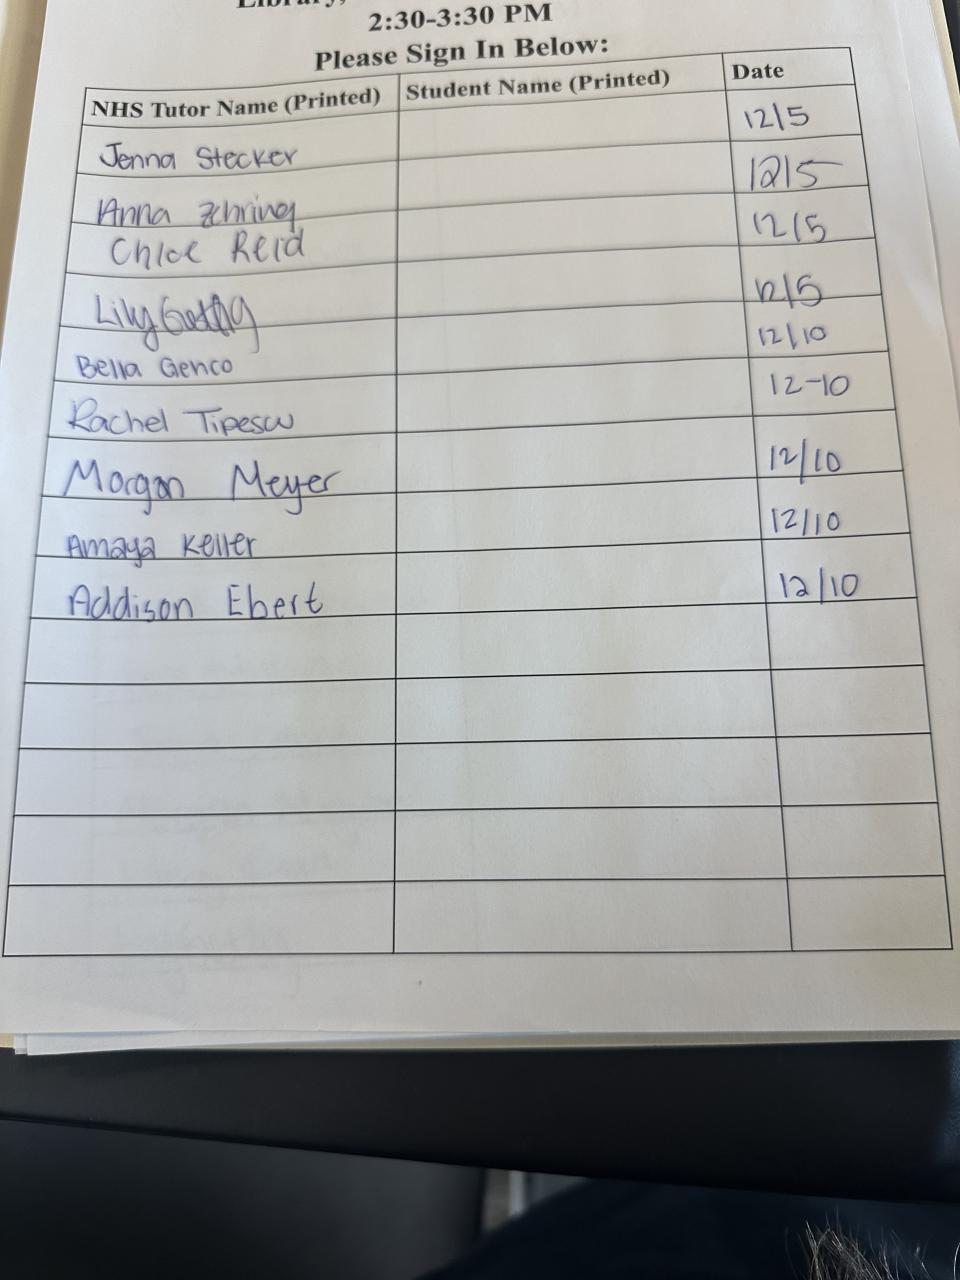 Library,
2:30-3:30 PM
Please Sign In Below:
NHS Tutor Name (Printed) Student Name (Printed) Date
Jenna Stecker 12/5
Anna Zehring 12/5
Chloe Reid 12/5
Lily 12/5
Bella Genco 12/10
Rachel Tipescu 12-10
Morgan Meyer 12/10
Amaya Keller 12/10
Addison Ebert 12/10